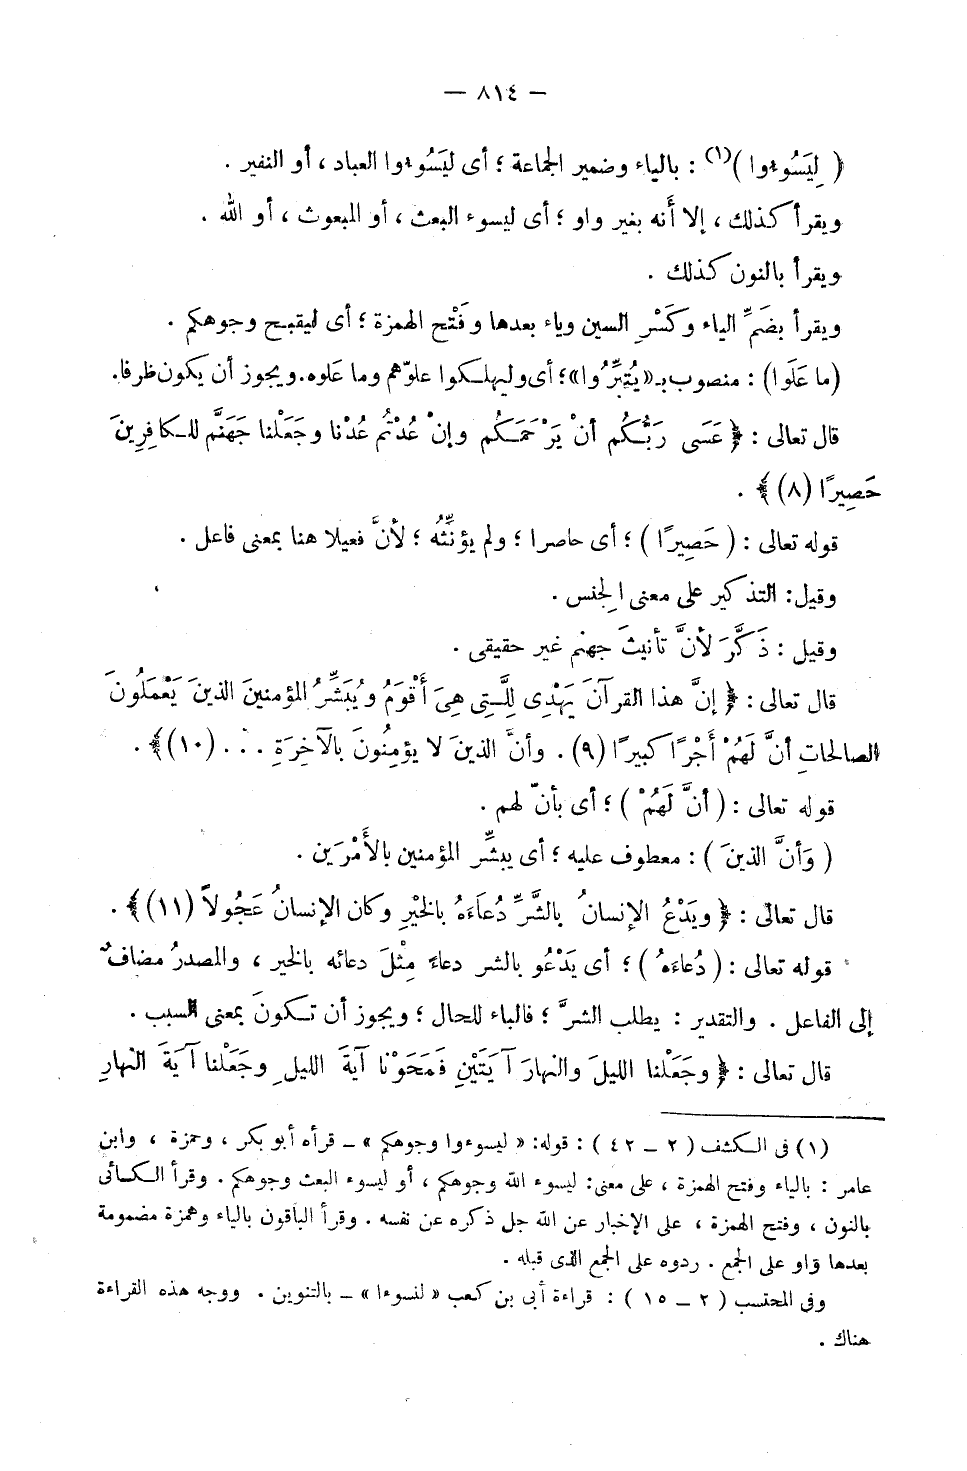 — ٨١٤ —
( لِيَسُوءوا )(١) : بالياء وضمير الجماعة ؛ أى ليَسُوءوا العباد ، أو النفير .
ويقرأ كذلك ، إلا أَنه بغير واو ؛ أى ليسوء البعث ، أو المبعوث ، أو الله .
ويقرأ بالنون كذلك .
ويقرأ بضَمِّ الياء وكَسْرِ السين وياء بعدها وفَتْح الهمزة ؛ أى ليقبح وجوهكم .
(ما عَلَوا) : منصوب بـ«يُتَبِّرُوا»؛ أى وليهلكوا علوّهم وما علوه. ويجوز أن يكون ظرفا.
قال تعالى : ﴿ عَسَى رَبُّكم أنْ يَرْحَمَكُم وإنْ عُدْتُم عُدْنا وجَعَلْنا جَهَنَّم للكافِرِينَ
حَصِيرًا (٨)﴾ .
قوله تعالى : ( حَصِيرًا ) ؛ أى حاصرا ؛ ولم يؤنِّثْه ؛ لأنَّ فعيلا هنا بمعنى فاعل .
وقيل: التذكير على معنى الجنس .
وقيل : ذَكَّرَ لأنَّ تأنيثَ جهنم غير حقيقى .
قال تعالى : ﴿ إنَّ هذا القرآنَ يَهْدِى لِلَّتِى هِىَ أَقْوَمُ ويُبَشِّرُ المؤمنين الذينَ يَعْمَلُونَ
الصالحاتِ أنَّ لَهُمْ أَجْرًا كبيرًا (٩) . وأنَّ الذينَ لا يؤمِنُونَ بالآخِرَةِ . . . (١٠)﴾ .
قوله تعالى : ( أنَّ لَهُمْ ) ؛ أى بأنّ لهم .
( وَأنَّ الذينَ ) : معطوف عليه ؛ أى يبشِّر المؤمنين بالأَمْرَين .
قال تعالى : ﴿ ويَدْعُ الإنسانُ بالشَّرِّ دُعاءَهُ بالخَيْرِ وكان الإنسانُ عَجُولاً (١١)﴾ .
قوله تعالى : ( دُعاءَهُ ) ؛ أى يَدْعُو بالشر دعاء مِثْلَ دعائه بالخير ، والمصدرُ مضافٌ
إلى الفاعل . والتقدير : يطلب الشرَّ ؛ فالباء للحال ؛ ويجوز أن تكونَ بمعنى السبب .
قال تعالى : ﴿ وجَعَلْنا الليلَ والنهارَ آيَتَيْنِ فَمَحَوْنا آيةَ الليلِ وجَعَلْنا آيةَ النهارِ
(١) فى الكشف (٢ – ٤٢) : قوله: « ليسوءوا وجوهكم » – قرأه أبو بكر ، وحمزة ، وابن
عامر : بالياء وفتح الهمزة ، على معنى: ليسوء الله وجوهكم ، أو ليسوء البعث وجوهكم . وقرأ الكسائى
بالنون ، وفتح الهمزة ، على الإخبار عن الله جل ذكره عن نفسه . وقرأ الباقون بالياء وهمزة مضمومة
بعدها واو على الجمع . ردوه على الجمع الذى قبله .
وفى المحتسب (٢ – ١٥) : قراءة أبى بن كعب « لنسوءا » – بالتنوين . ووجه هذه القراءة
هناك .